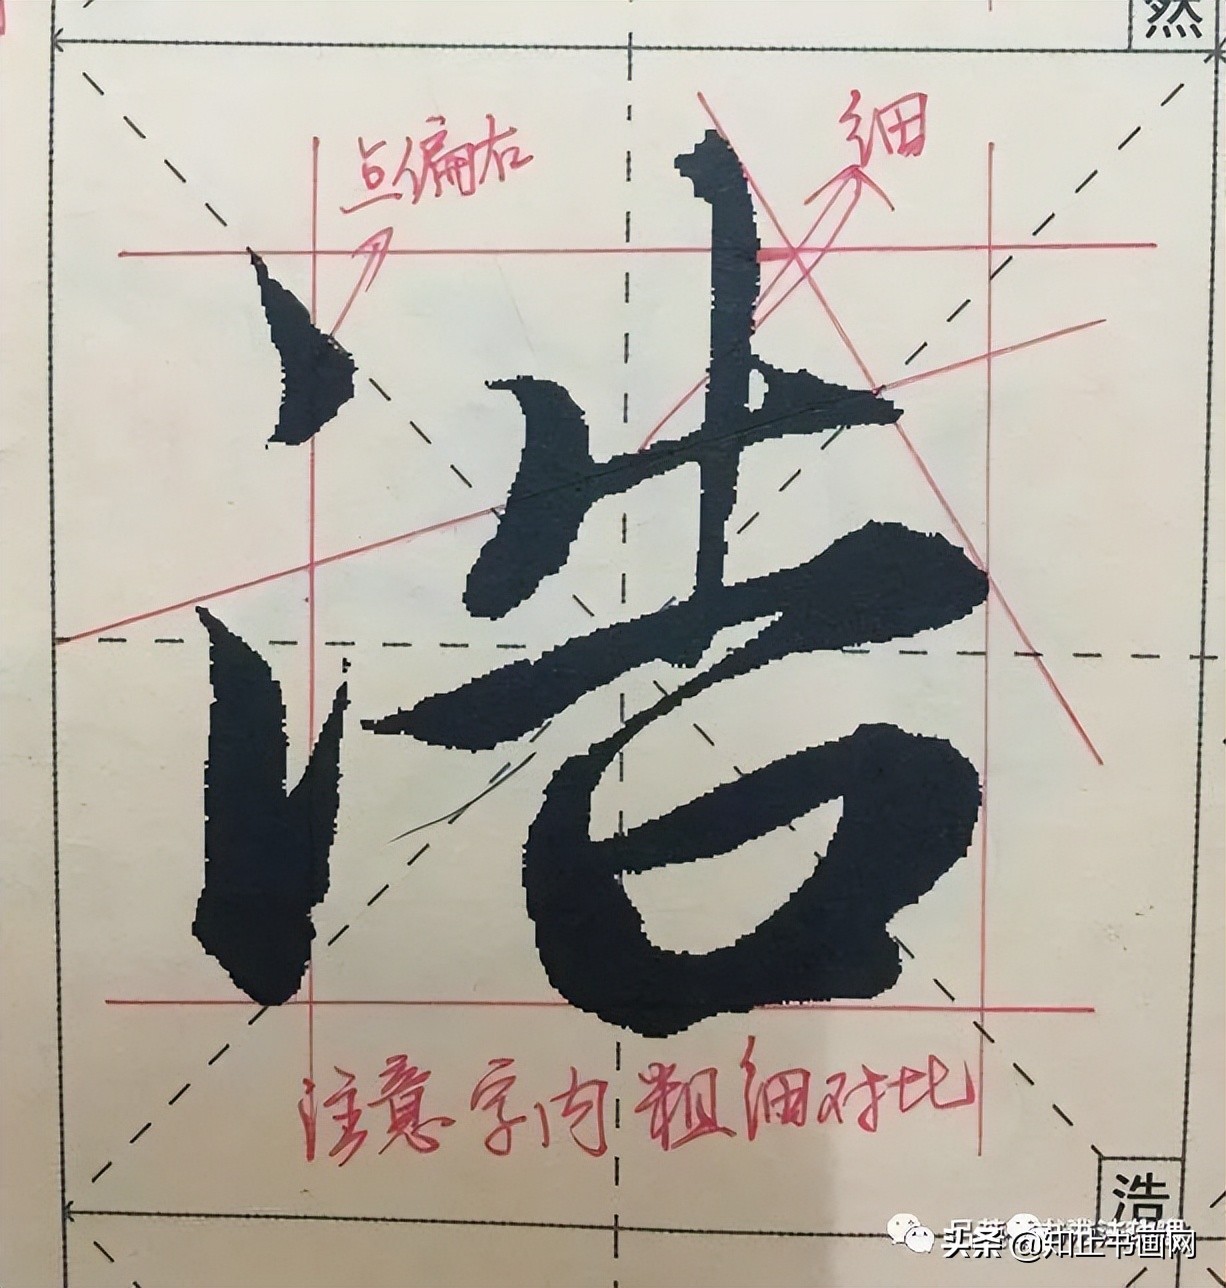 然
细
点偏右
浩
注意字内粗细对比
浩
头条 @知止书画网